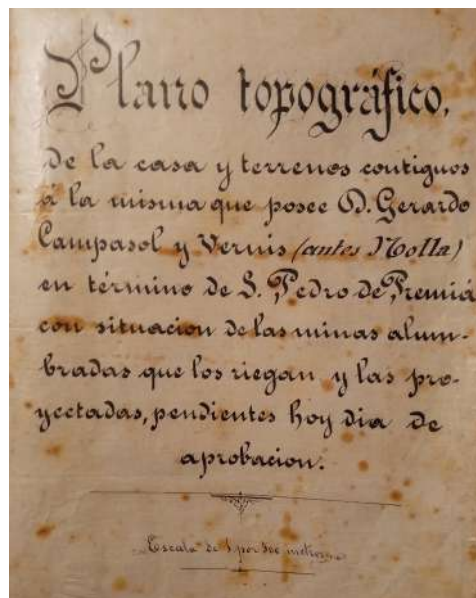 Plano topográfico,
de la casa y terrenos contiguos
á la misma que posee D. Gerardo
Campasol y Vernis (antes Molla)
en término de S. Pedro de Premiá
con situacion de las minas alum-
bradas que los riegan y las pro-
yectadas, pendientes hoy dia de
aprobacion.
Escala de 1 por 300 metros